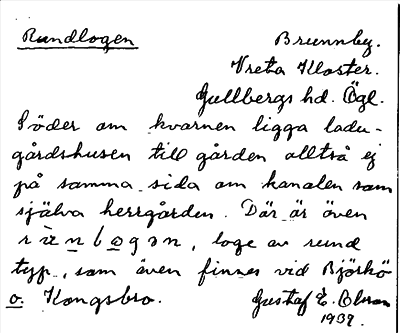 Rundlogen
Brunnby.
Vreta Kloster.
Gullbergs hd. Ögl.
Söder om kvarnen ligga ladu-
gårdshusen till gården alltså ej
på samma sida om kanalen som
själva herrgården. Där är även
loge av rund
typ, som även finnes vid Björkö
o. Kongsbro.
Gustaf E. Olsson
1939.